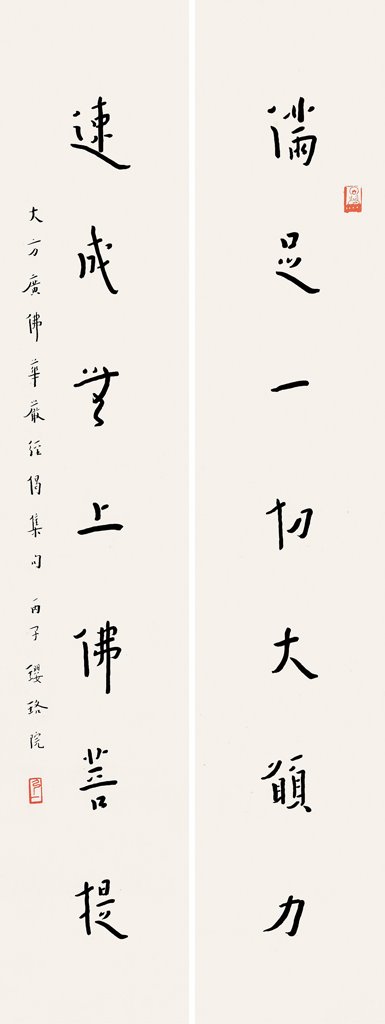 滿足一切大願力
速成無上佛菩提
大方廣佛華嚴經偈集句 丙子瓔珞院